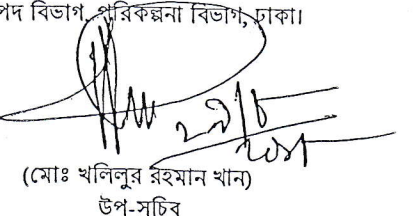 পদ বিভাগ, পরিকল্পনা বিভাগ, ঢাকা।
(মোঃ খলিলুর রহমান খান)
উপ-সচিব